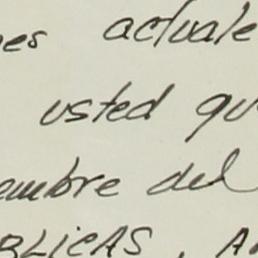 es actuale
usted qu
embre del
BLICAS, A